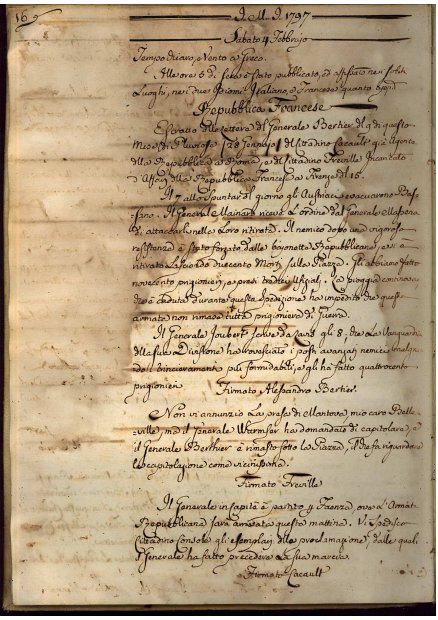 16
A. M. D. 1797
Sabato 4 Febbrajo
Tempo chiaro, e Vento a Greco.
Alle ore 5 di sera è stato pubblicato, ed affisso ne i soliti
Luoghi, nei due Idiomi Italiano, e Francese quanto
Repubblica Francese
Estratto delle lettere del Generale Bertier del 9 di questo
Mese di Piuvoso [28 Gennajo] del Cittadino Cacault già Agente
della Repubblica a Roma, e del Cittadino Freville Incaricato
d'Affari della Repubblica Francese a Firenze del 15.
Il 7 allo Spuntar del giorno gli Austriaci evacuarono
sano. Il Generale Mainard riceve l'ordine dal Generale Massena
di attaccarli nella loro ritirata. Il nemico dopo una vigorosa
resistenza è stato forzato dalle bajonette Repubblicane, e si è
ritirato lasciando duecento Morti sulla Piazza. Gli abbiamo fatto
novecento prigionieri, e presi tredici Uffizali. La pioggia continova
che è caduta durante questa spedizione ha impedito che questa
armata non rimase tutta prigioniera di Guerra.
Il Generale Joubert scrive da gli 8; che la Vanguardia
della sua Divisione ha rovesciati i posti avanzati nemici malgrado
i trincieramenti più formidabili, e gli ha fatto quattrocento
prigionieri Firmato Alessandro Bertier.
Non vi annunzio la presa di Mantova, mio caro Belle-
ville, ma il Generale Wurmser ha domandato di capitolare, e
il Generale Berthier è rimasto sotto la Piazza, il che fa riguardare
la capitolazione come vicinissima.
Firmato Freville
Il Generale in Capite è partito p Faenza, ove l'Armata
Repubblicana sarà arrivata questa mattina. Vi spedisco
Cittadino Console gli esemplari della proclamazione, dalle quali
il Generale ha fatto precedere la sua marcia.
Firmato Cacault